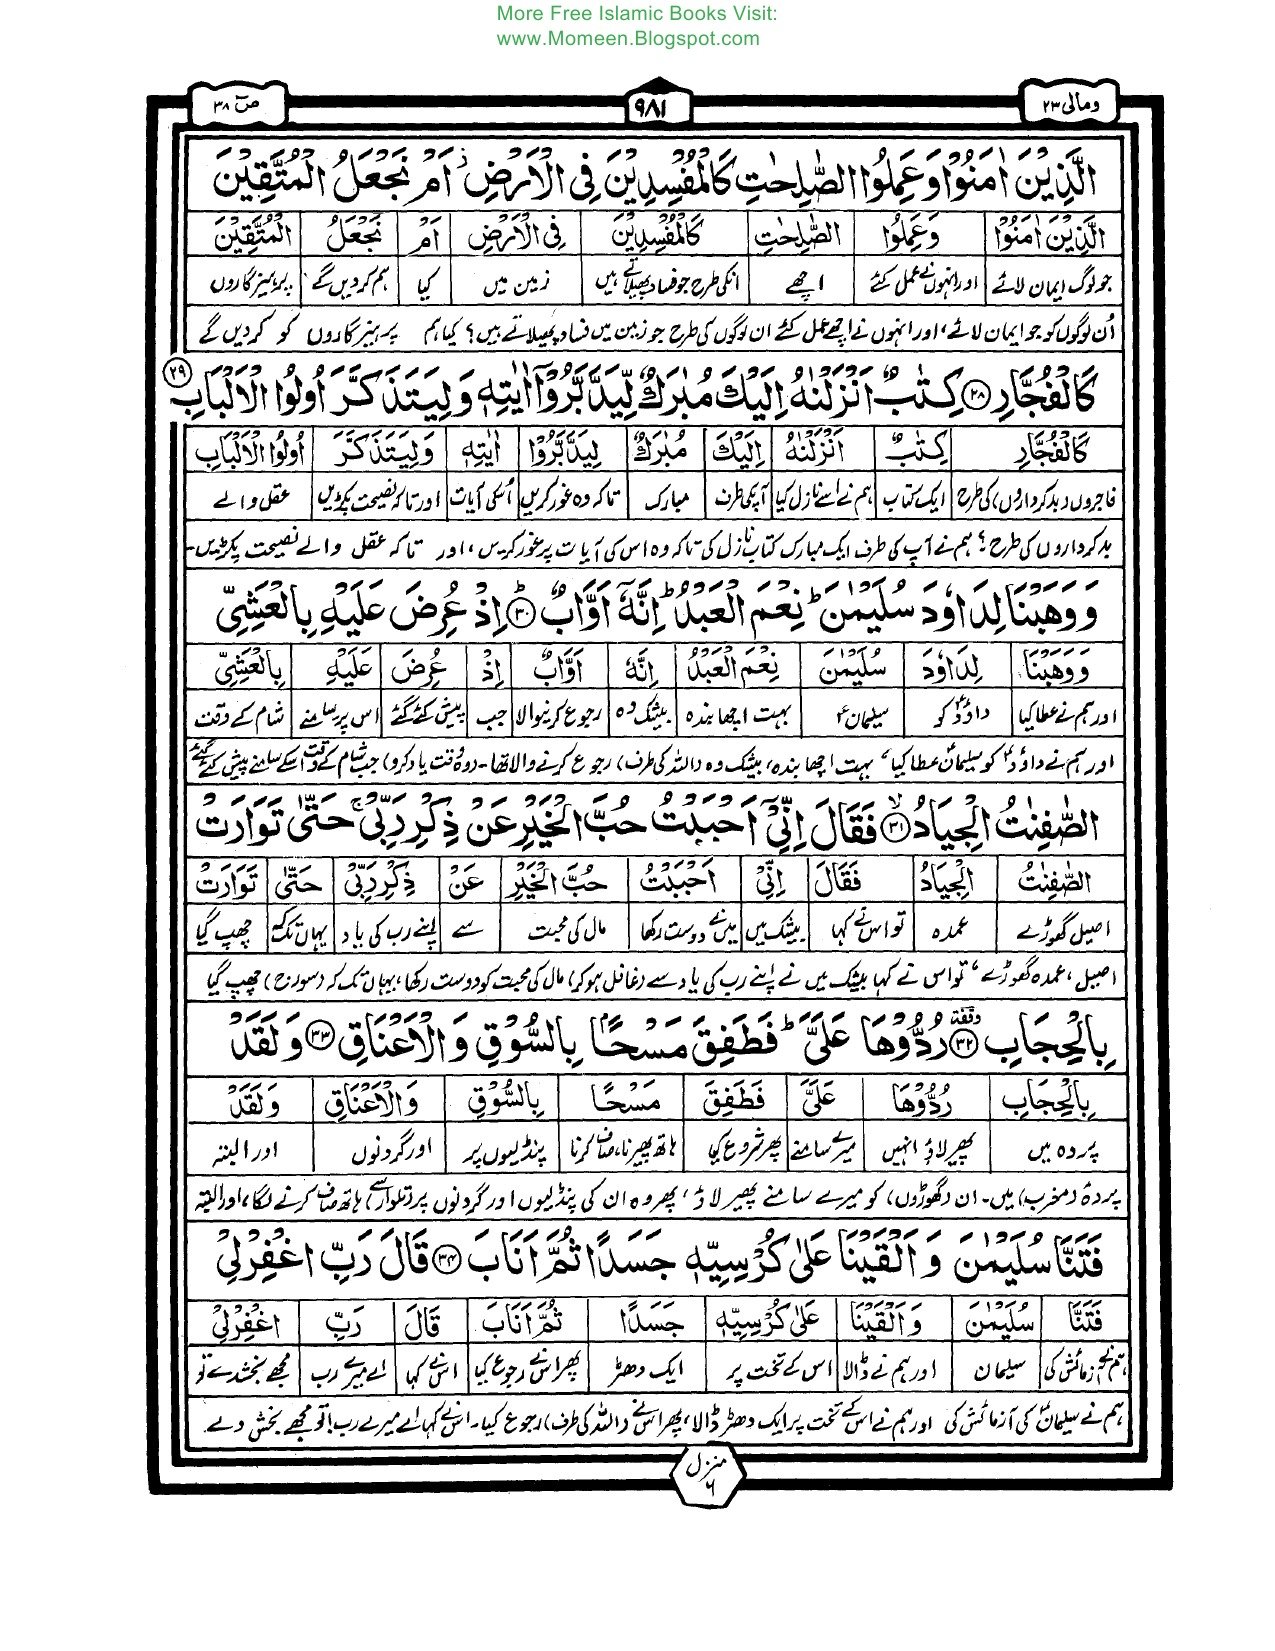 More Free Islamic Books Visit:
www.Momeen.Blogspot.com
ومالی ۲۳
۹۸۱
ص ۳۸
الَّذِیْنَ اٰمَنُوْا وَعَمِلُوا الصّٰلِحٰتِ كَالْمُفْسِدِیْنَ فِی الْاَرْضِ ز اَمْ نَجْعَلُ الْمُتَّقِیْنَ
الَّذِیْنَ اٰمَنُوْا وَعَمِلُوا الصّٰلِحٰتِ كَالْمُفْسِدِیْنَ فِی الْاَرْضِ اَمْ نَجْعَلُ الْمُتَّقِیْنَ
جو لوگ ایمان لائے اور انہوں نے عمل کئے اچھے انکی طرح جو فساد پھیلاتے ہیں زمین میں کیا ہم کر دیں گے پرہیزگاروں
اُن لوگوں کو جو ایمان لائے، اور انہوں نے اچھے عمل کئے ان لوگوں کی طرح جو زمین میں فساد پھیلاتے ہیں؟ کیا ہم پرہیزگاروں کو کر دیں گے
كَالْفُجَّارِ ۲۸ كِتٰبٌ اَنْزَلْنٰهُ اِلَیْكَ مُبٰرَكٌ لِّیَدَّبَّرُوْۤا اٰیٰتِهٖ وَلِیَتَذَكَّرَ اُولُوا الْاَلْبَابِ ۲۹
كَالْفُجَّارِ كِتٰبٌ اَنْزَلْنٰهُ اِلَیْكَ مُبٰرَكٌ لِیَدَّبَّرُوْا اٰیٰتِهٖ وَلِیَتَذَكَّرَ اُولُوا الْاَلْبَابِ
فاجروں (بدکرداروں) کی طرح ایک کتاب ہم نے اسے نازل کیا آپکی طرف مبارک تاکہ وہ غور کریں اُسکی آیات اور تاکہ نصیحت پکڑیں عقل والے
بدکرداروں کی طرح؟ ہم نے آپ کی طرف ایک مبارک کتاب نازل کی تاکہ وہ اس کی آیات پر غور کریں، اور تاکہ عقل والے نصیحت پکڑیں۔
وَوَهَبْنَا لِدَاوٗدَ سُلَیْمٰنَ ط نِعْمَ الْعَبْدُ ط اِنَّهٗۤ اَوَّابٌ ۳۰ ط اِذْ عُرِضَ عَلَیْهِ بِالْعَشِیِّ
وَوَهَبْنَا لِدَاوٗدَ سُلَیْمٰنَ نِعْمَ الْعَبْدُ اِنَّهٗ اَوَّابٌ اِذْ عُرِضَ عَلَیْهِ بِالْعَشِیِّ
اور ہم نے عطا کیا داؤدؑ کو سلیمانؑ بہت اچھا بندہ بیشک وہ رجوع کرنیوالا جب پیش کئے گئے اس پر سامنے شام کے وقت
اور ہم نے داؤدؑ کو سلیمانؑ عطا کیا، بہت اچھا بندہ، بیشک وہ (اللہ کی طرف) رجوع کرنے والا تھا۔ (وہ وقت یاد کرو) جب شام کے وقت اسکے سامنے پیش کئے گئے
الصّٰفِنٰتُ الْجِیَادُ ۳۱ لا فَقَالَ اِنِّیْۤ اَحْبَبْتُ حُبَّ الْخَیْرِ عَنْ ذِكْرِ رَبِّیْ ج حَتّٰى تَوَارَتْ
الصّٰفِنٰتُ الْجِیَادُ فَقَالَ اِنِّیْ اَحْبَبْتُ حُبَّ الْخَیْرِ عَنْ ذِكْرِ رَبِّیْ حَتّٰى تَوَارَتْ
اصیل گھوڑے عمدہ تو اس نے کہا بیشک میں میں نے دوست رکھا مال کی محبت سے اپنے رب کی یاد یہاں تک کہ چھپ گیا
اصیل، عمدہ گھوڑے، تو اس نے کہا بیشک میں نے اپنے رب کی یاد سے (غافل ہوکر) مال کی محبت کو دوست رکھا، یہاں تک کہ (سورج) چھپ گیا
بِالْحِجَابِ ۳۲ وقفة رُدُّوْهَا عَلَیَّ ط فَطَفِقَ مَسْحًۢا بِالسُّوْقِ وَالْاَعْنَاقِ ۳۳ وَلَقَدْ
بِالْحِجَابِ رُدُّوْهَا عَلَیَّ فَطَفِقَ مَسْحًا بِالسُّوْقِ وَالْاَعْنَاقِ وَلَقَدْ
پردہ میں پھیر لاؤ انہیں میرے سامنے پھر شروع کیا ہاتھ پھیرنا، صاف کرنا پنڈلیوں پر اور گردنوں اور البتہ
پردۂ (مغرب) میں۔ ان (گھوڑوں) کو میرے سامنے پھیر لاؤ، پھر وہ ان کی پنڈلیوں اور گردنوں پر (تلوار سے) ہاتھ صاف کرنے لگا، اور البتہ
فَتَنَّا سُلَیْمٰنَ وَاَلْقَیْنَا عَلٰى كُرْسِیِّهٖ جَسَدًا ثُمَّ اَنَابَ ۳۴ قَالَ رَبِّ اغْفِرْلِیْ
فَتَنَّا سُلَیْمٰنَ وَاَلْقَیْنَا عَلٰى كُرْسِیِّهٖ جَسَدًا ثُمَّ اَنَابَ قَالَ رَبِّ اغْفِرْلِیْ
ہم نے آزمائش کی سلیمان اور ہم نے ڈالا اس کے تخت پر ایک دھڑ پھر اس نے رجوع کیا اس نے کہا اے میرے رب مجھے بخشدے تو
ہم نے سلیمانؑ کی آزمائش کی اور ہم نے اس کے تخت پر ایک دھڑ ڈالا، پھر اس نے (اللہ کی طرف) رجوع کیا۔ اس نے کہا اے میرے رب! تو مجھے بخش دے
منزل ۶